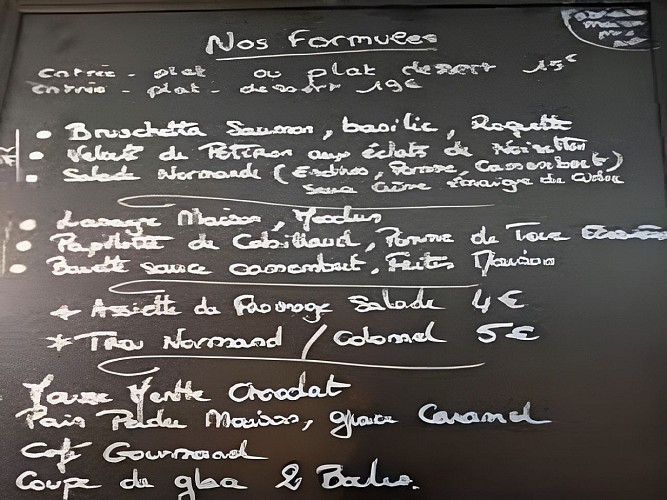 Nos Formules
Entrée - plat ou plat dessert 15€
Entrée - plat - dessert 19€
• Bruschetta Saumon, basilic, Roquette
• Velouté de Potiron aux éclats de Noisettes
• Salade Normande (Endives, Pomme, Camembert)
sauce Crème Vinaigre de Cidre
• Lasagne Maison,
• Papillote de Cabillaud, Pomme de Terre
• Bavette sauce camembert, Frites Maison
+ Assiette de Fromage Salade 4€
* Trou Normand / Colonel 5€
Menthe Chocolat
Pain Perdu Maison, glace Caramel
Café Gourmand
Coupe de glace 2 Boules.